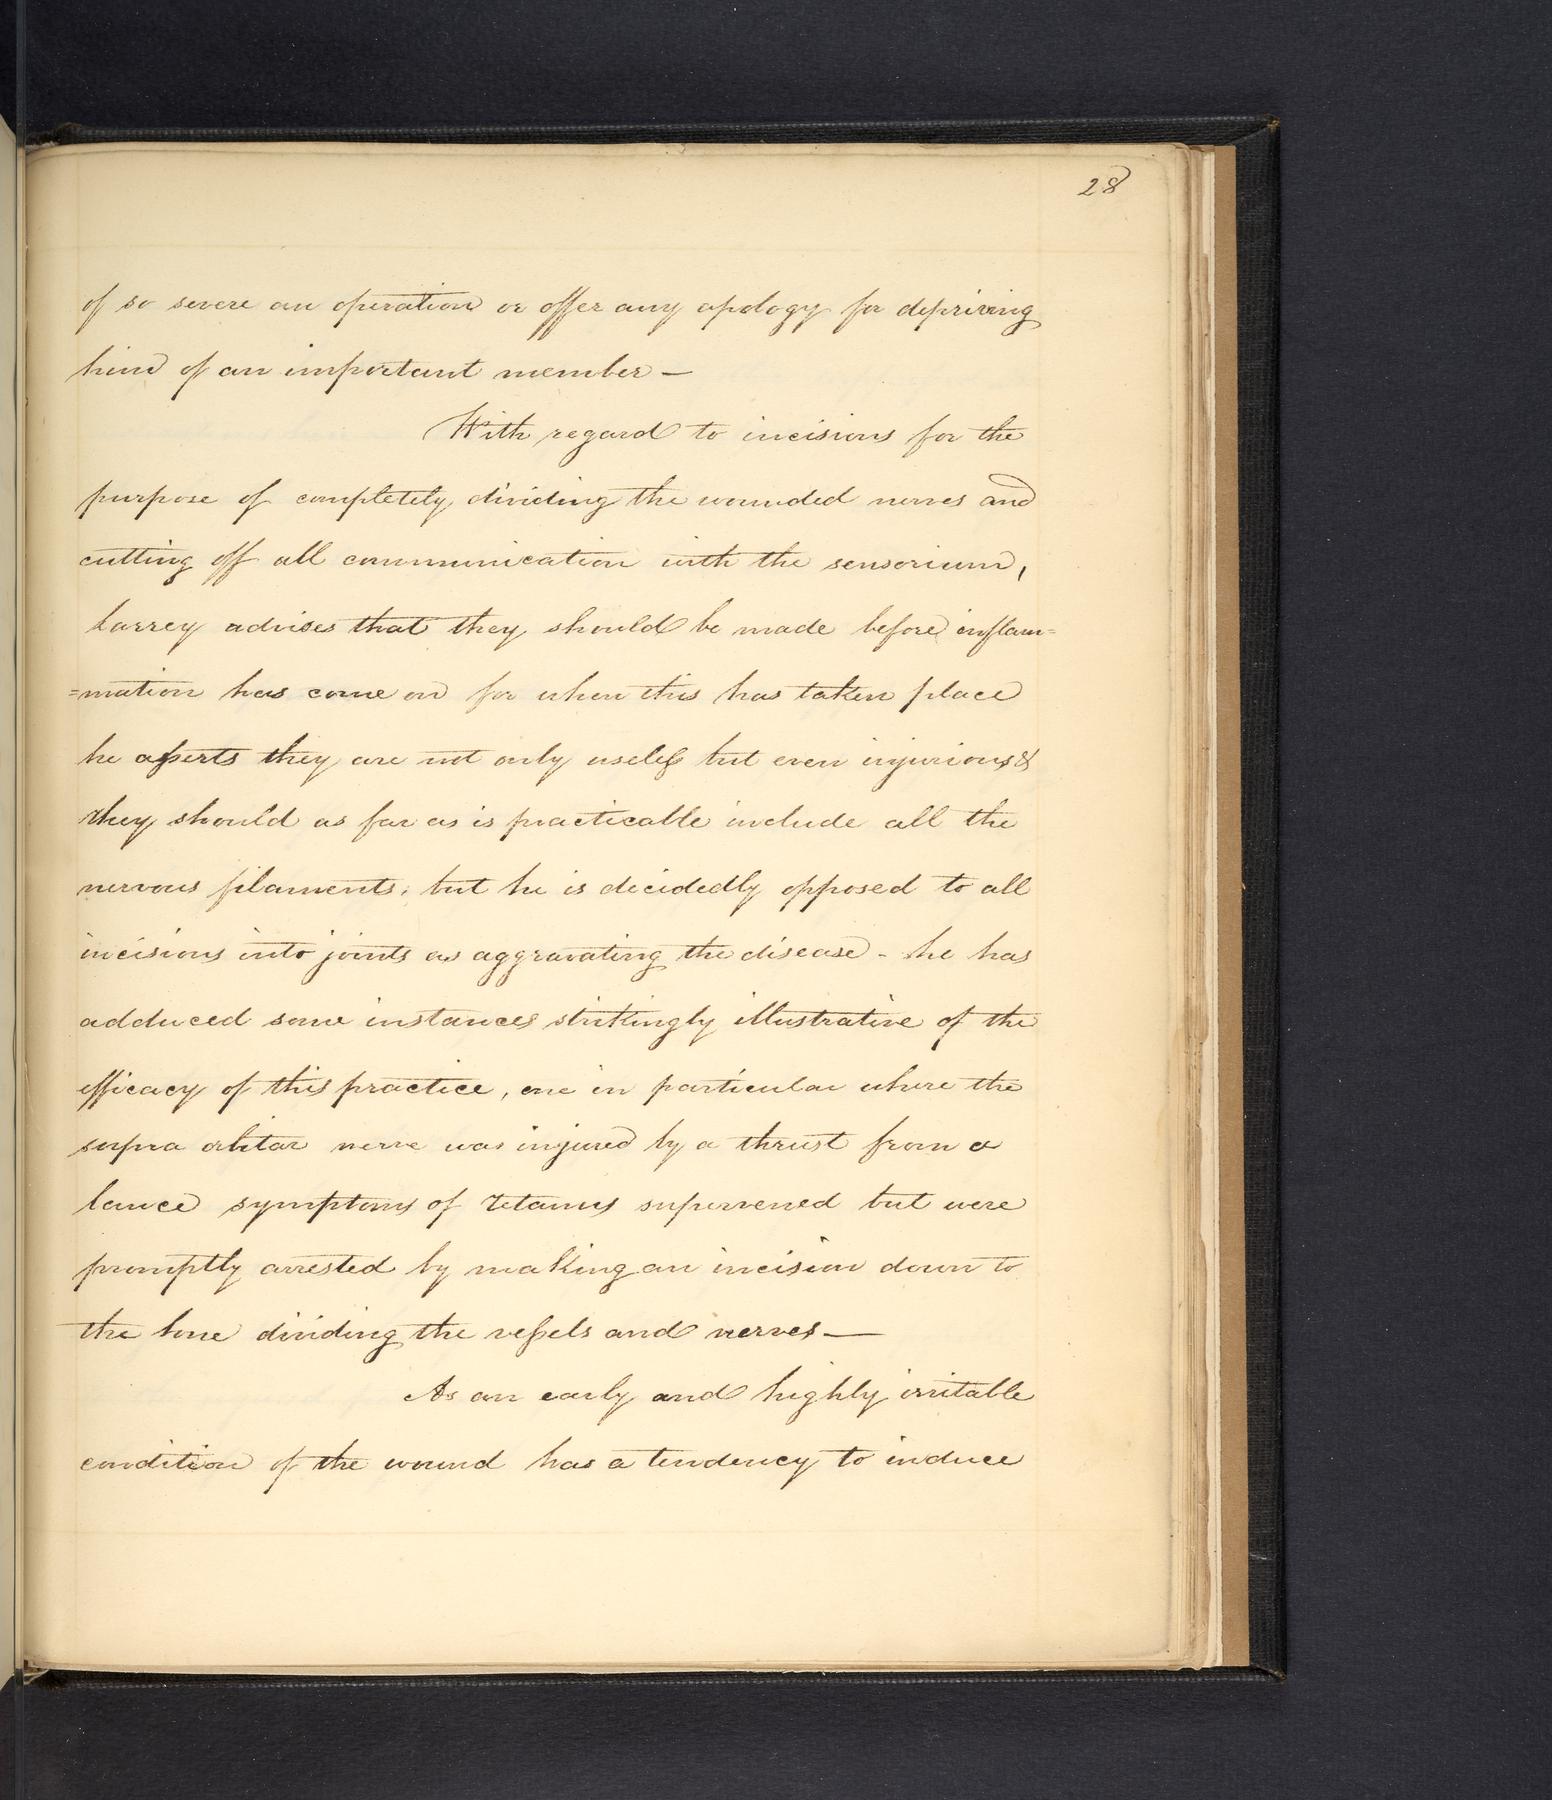 28
of so severe an operation or offer any apology for depriving
him of an important member —
With regard to incisions for the
purpose of completely dividing the wounded nerves and
cutting off all communication with the sensorium,
Larrey advises that they should be made before inflam=
=mation has come on for when this has taken place
he aſserts they are not only useleſs but even injurious &
they should as far as is practicable include all the
nervous filaments; but he is decidedly opposed to all
incisions into joints as aggravating the disease - he has
adduced some instances strikingly illustrative of the
efficacy of this practice, one in particular where the
supra orbitar nerve was injured by a thrust from a
lance symptoms of Tetanus supervened but were
promptly arrested by making an incision down to
the bone dividing the veſsels and nerves —
As an early and highly irritable
condition of the wound has a tendency to induce